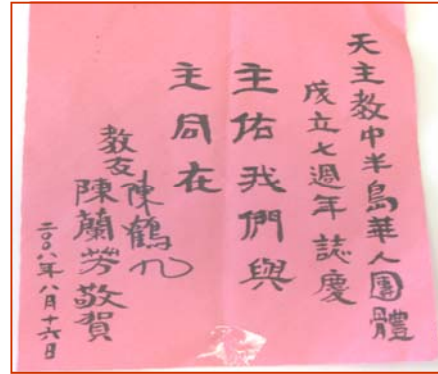 天主教中半島華人團體
成立七週年誌慶
主佑我們與
主同在
教友陳鶴九
陳蘭芳敬賀
二〇〇八年八月十六日